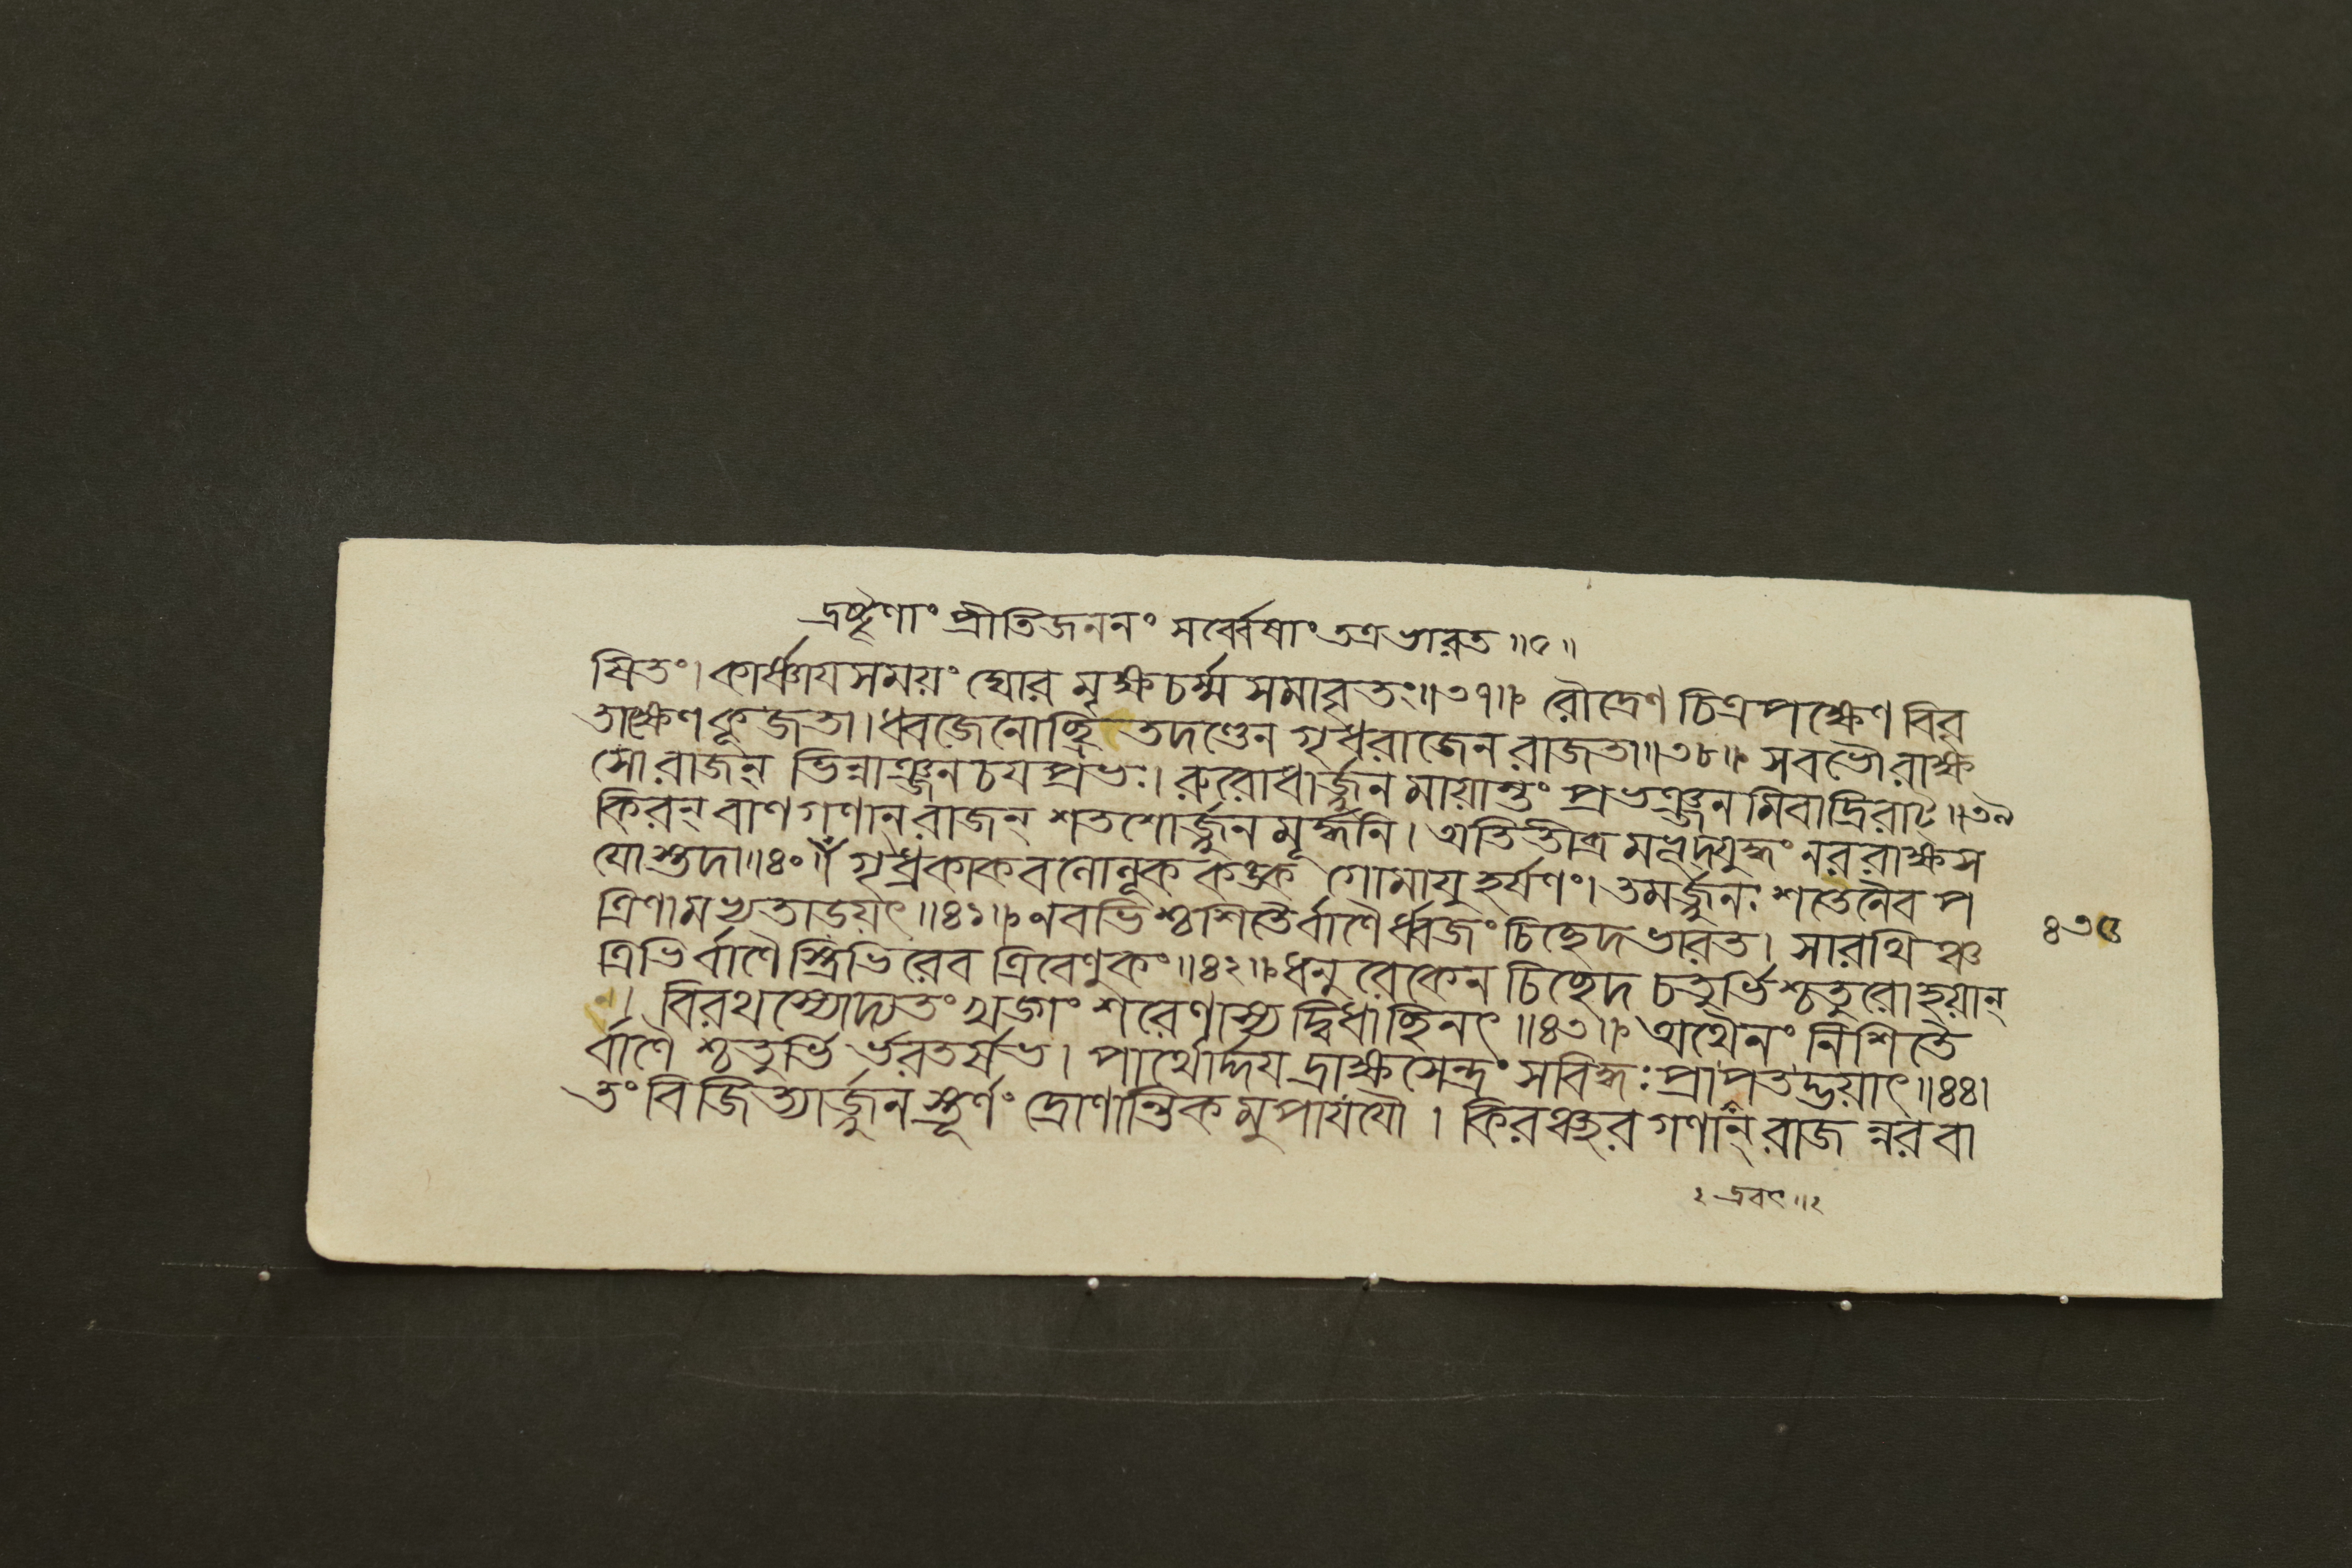 দ্রষ্টৄণাং প্রীতিজননং সর্ব্বেষাং তত্রভারত॥৫॥
ষিতং। কার্ষ্ণায়সময়ং ঘোর মৃক্ষচর্ম্ম সমাবৃতং॥৩৭॥ রৌদ্রেণ চিত্রপক্ষেণ বিবৃ
তাক্ষেণকূজতা। ধ্বজেনোচ্ছ্রিতদণ্ডেন গৃধ্ররাজেন রাজতা॥৩৮॥ সবভৌরাক্ষ
সোরাজন্ ভিন্নাঞ্জনচয়প্রভঃ। রুরোধার্জ্জুনমায়ান্তং প্রভঞ্জনমিবাদ্রিরাট্॥৩৯
কিরন্ বাণগণান্ রাজন্ শতশোর্জ্জুনমূর্দ্ধনি। অতিতীব্রমহদ্যুদ্ধং নররাক্ষস
যোস্তদা॥৪০॥ গৃধ্রকাকবলোলূককঙ্কগোমায়ুহর্ষণং। তমর্জ্জুনঃ শতেনৈব প
ত্রিণামভ্যতাডয়ৎ॥৪১॥ নবভিশ্চশিতৈর্বাণৈর্ধ্বজং চিচ্ছেদভারত। সারথিঞ্চ
ত্রিভির্বাণৈস্ত্রিভিরেব ত্রিবেণুকং॥৪২॥ ধনুরেকেন চিচ্ছেদ চতুর্ভিশ্চতুরোহয়ান্
। বিরথস্যোদ্যতং খড্গং শরেণাস্য দ্বিধাচ্ছিনৎ॥৪৩॥ অথৈনং নিশিতৈ
র্বাণৈশ্চতুর্ভির্ভরতর্ষভ। পার্থোর্দ্দয়দ্রাক্ষসেন্দ্রং সবিদ্ধঃ প্রাপতদ্ভয়াৎ॥৪৪।
তং বিজিত্যার্জ্জুনস্তূর্ণং দ্রোণান্তিকমুপাযযৌ। কিরঞ্ছরগণান্ রাজন্নরবা
২ দ্রবৎ॥২
৪৩৫